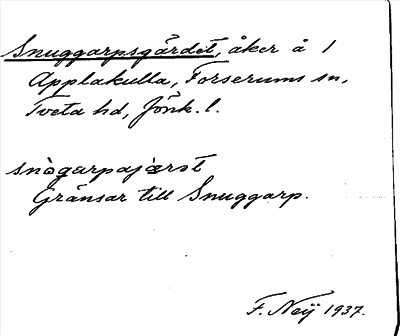 Snuggarpsgärdet, åker å 1
Applakulla, Forserums sn,
Tveta hd, Jönk. l.
snògarpajæret
Gränsar till Snuggarp.
F. Neij 1937.